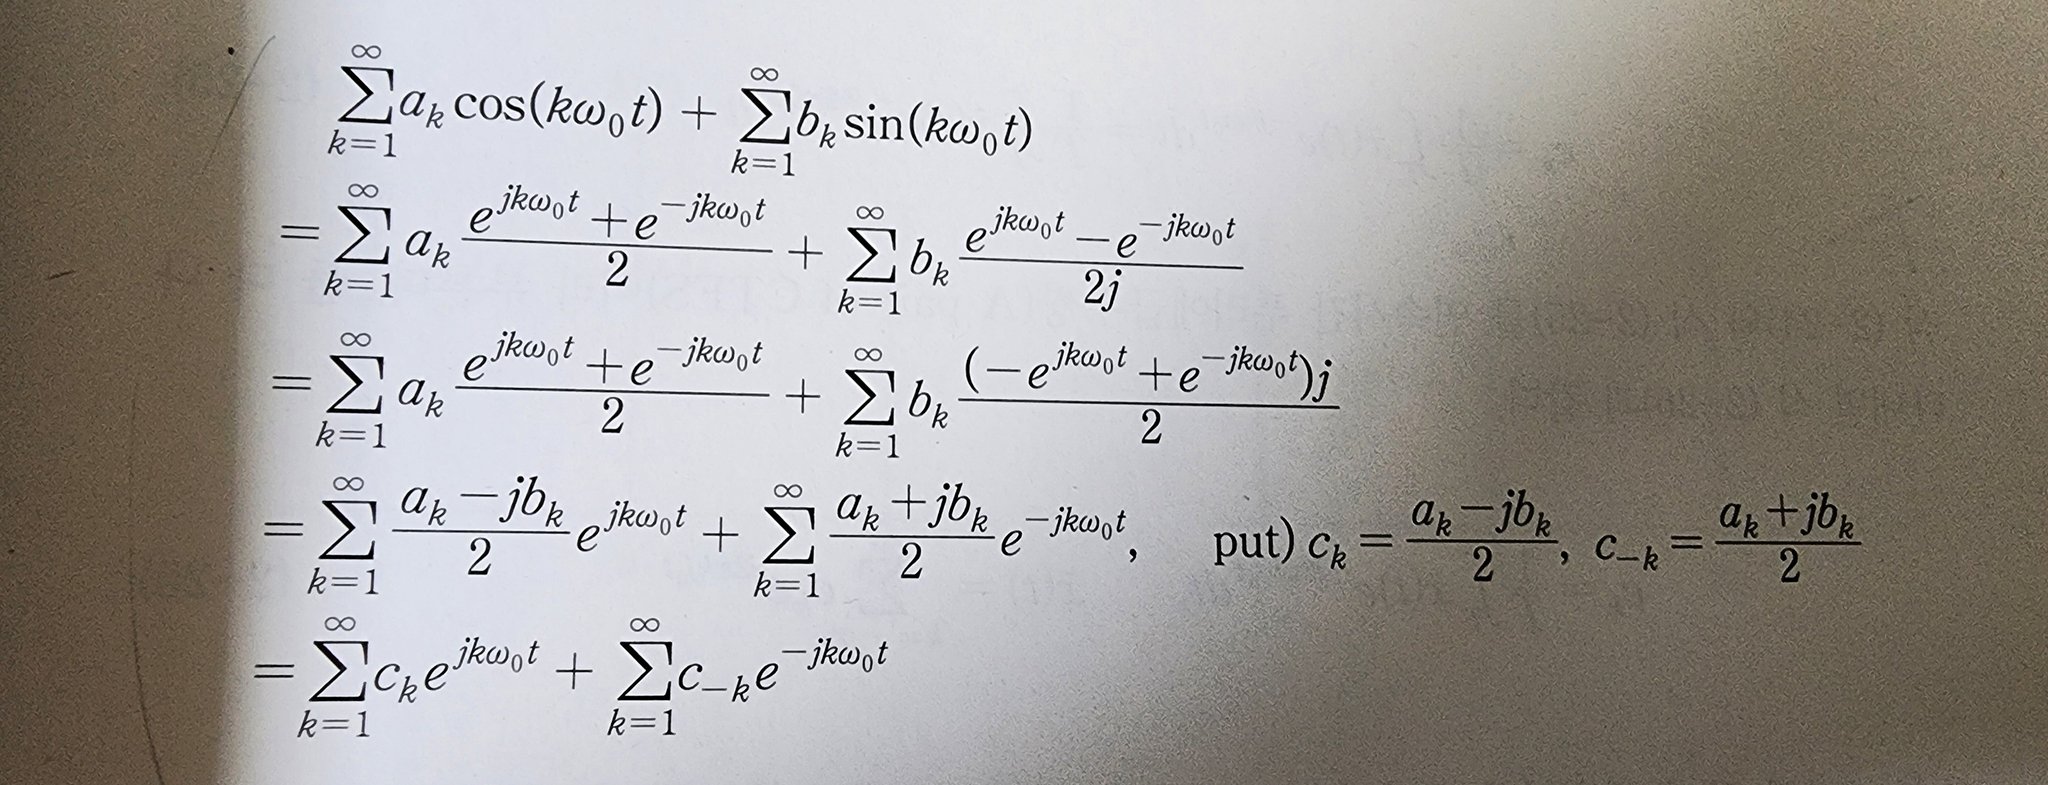 \sum_{k=1}^{\infty} a_k \cos(k\omega_0 t) + \sum_{k=1}^{\infty} b_k \sin(k\omega_0 t)
= \sum_{k=1}^{\infty} a_k \frac{e^{jk\omega_0 t} + e^{-jk\omega_0 t}}{2} + \sum_{k=1}^{\infty} b_k \frac{e^{jk\omega_0 t} - e^{-jk\omega_0 t}}{2j}
= \sum_{k=1}^{\infty} a_k \frac{e^{jk\omega_0 t} + e^{-jk\omega_0 t}}{2} + \sum_{k=1}^{\infty} b_k \frac{(-e^{jk\omega_0 t} + e^{-jk\omega_0 t})j}{2}
= \sum_{k=1}^{\infty} \frac{a_k - jb_k}{2} e^{jk\omega_0 t} + \sum_{k=1}^{\infty} \frac{a_k + jb_k}{2} e^{-jk\omega_0 t}, put) c_k = \frac{a_k - jb_k}{2}, c_{-k} = \frac{a_k + jb_k}{2}
= \sum_{k=1}^{\infty} c_k e^{jk\omega_0 t} + \sum_{k=1}^{\infty} c_{-k} e^{-jk\omega_0 t}